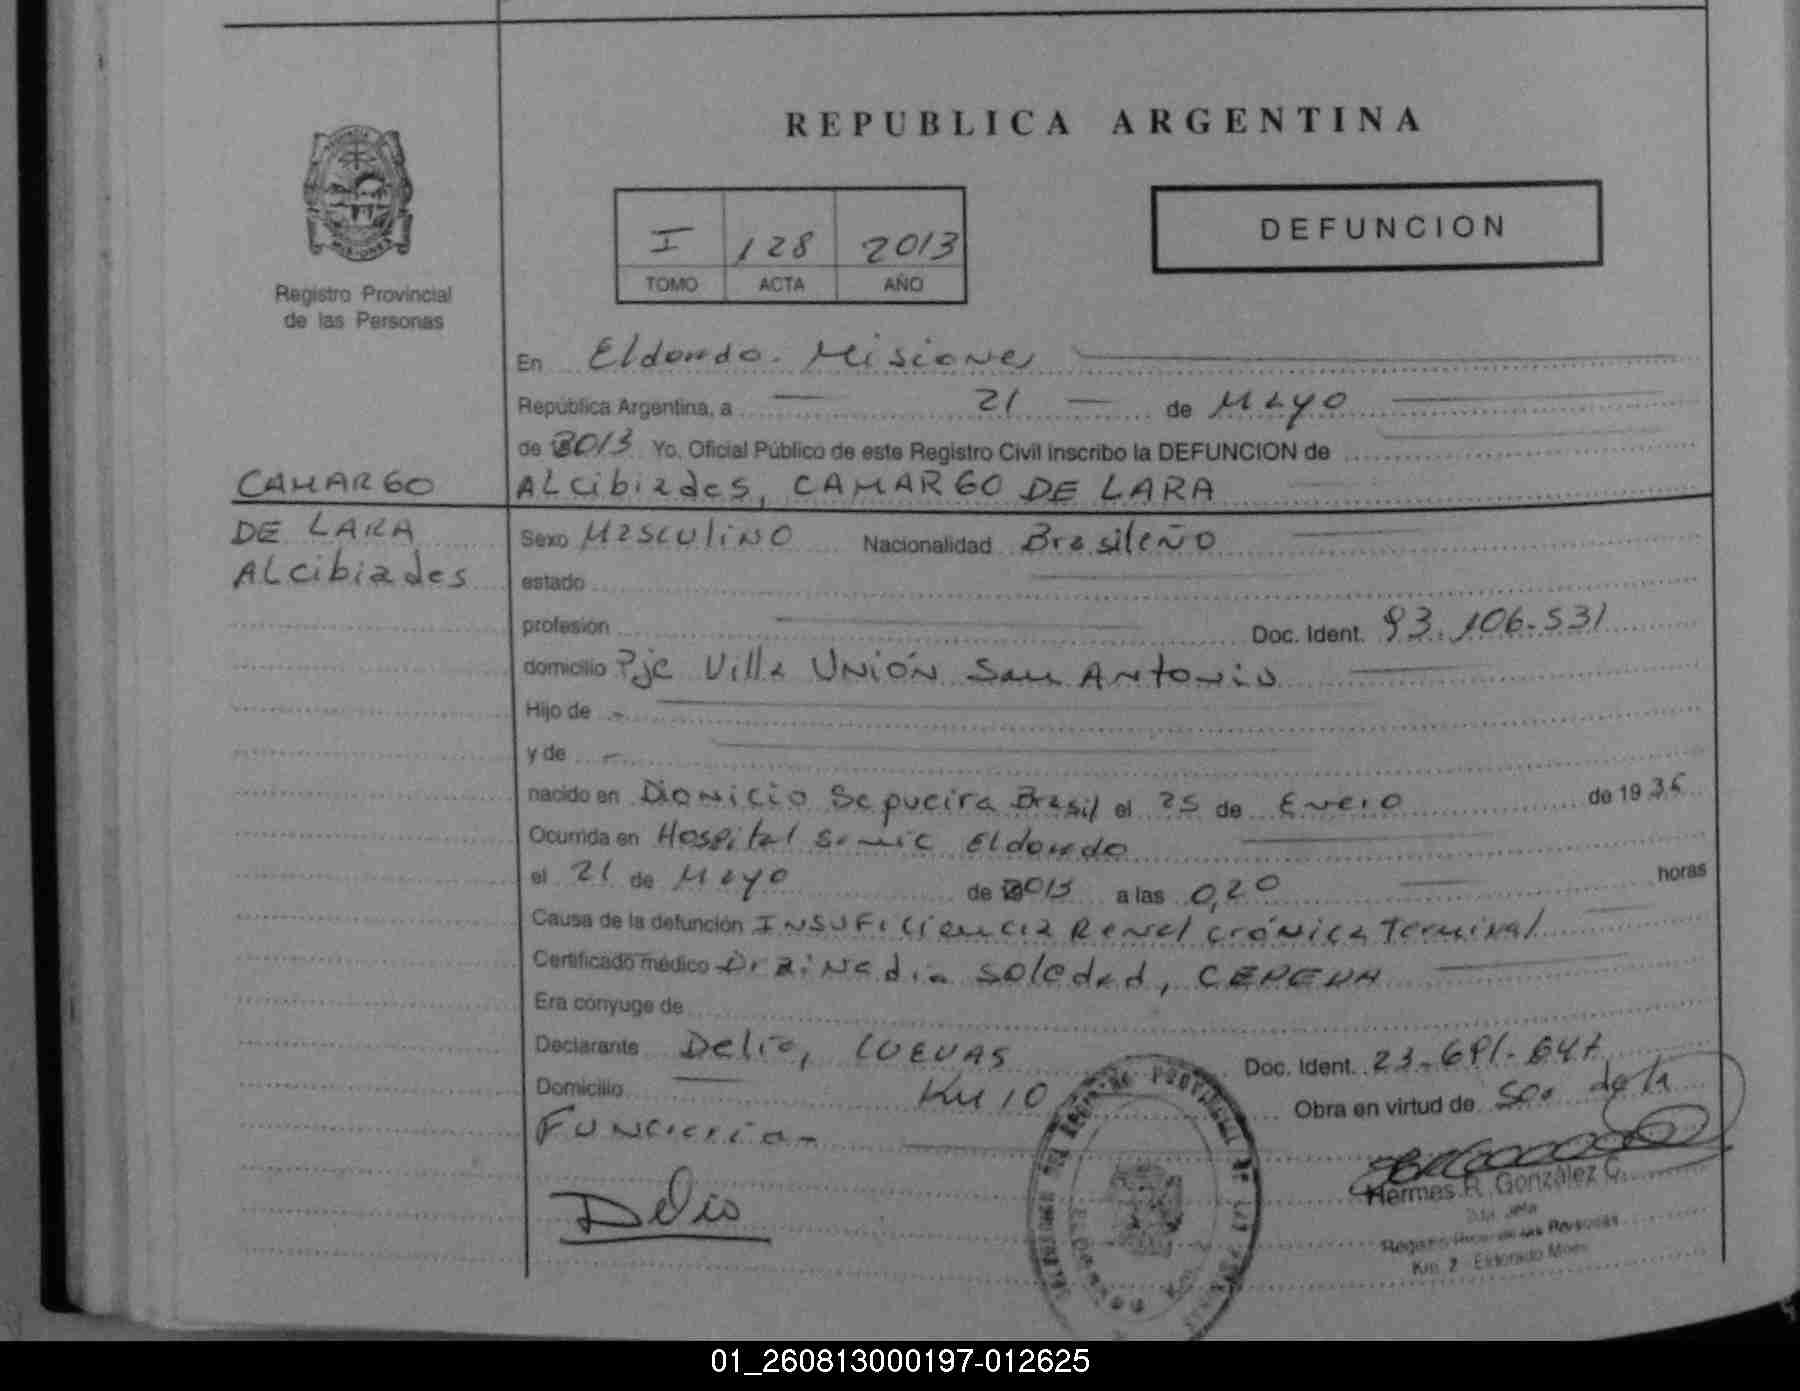 REPUBLICA ARGENTINA
I 128 2013
TOMO ACTA AÑO
DEFUNCION
Registro Provincial
de las Personas
En Eldorado. Misiones
República Argentina, a 21 de Mayo
de 2013 Yo, Oficial Público de este Registro Civil inscribo la DEFUNCION de
CAMARGO
DE LARA
Alcibiades
Alcibiades, CAMARGO DE LARA
Sexo Masculino Nacionalidad Brasileño
estado
profesión Doc. Ident. 93.106.531
domicilio Pje Villa Unión San Antonio
Hijo de
y de
nacido en Dionicio Sepueira Brasil el 25 de Enero de 19
Ocurrida en Hospital Samic Eldorado
el 21 de Mayo de 2013 a las 0,20 horas
Causa de la defunción Insuficiencia Renal crónica Terminal
Certificado médico Nadia Soledad, CEPEDA
Era cónyuge de
Declarante Delio, CUEVAS Doc. Ident. 23.691.647
Domicilio Km 10 Obra en virtud de de la
Funeraria
Delio
Hermes R. González C.
Registro Prov. de las Personas
Km. 2 Eldorado Mnes.
01_260813000197-012625